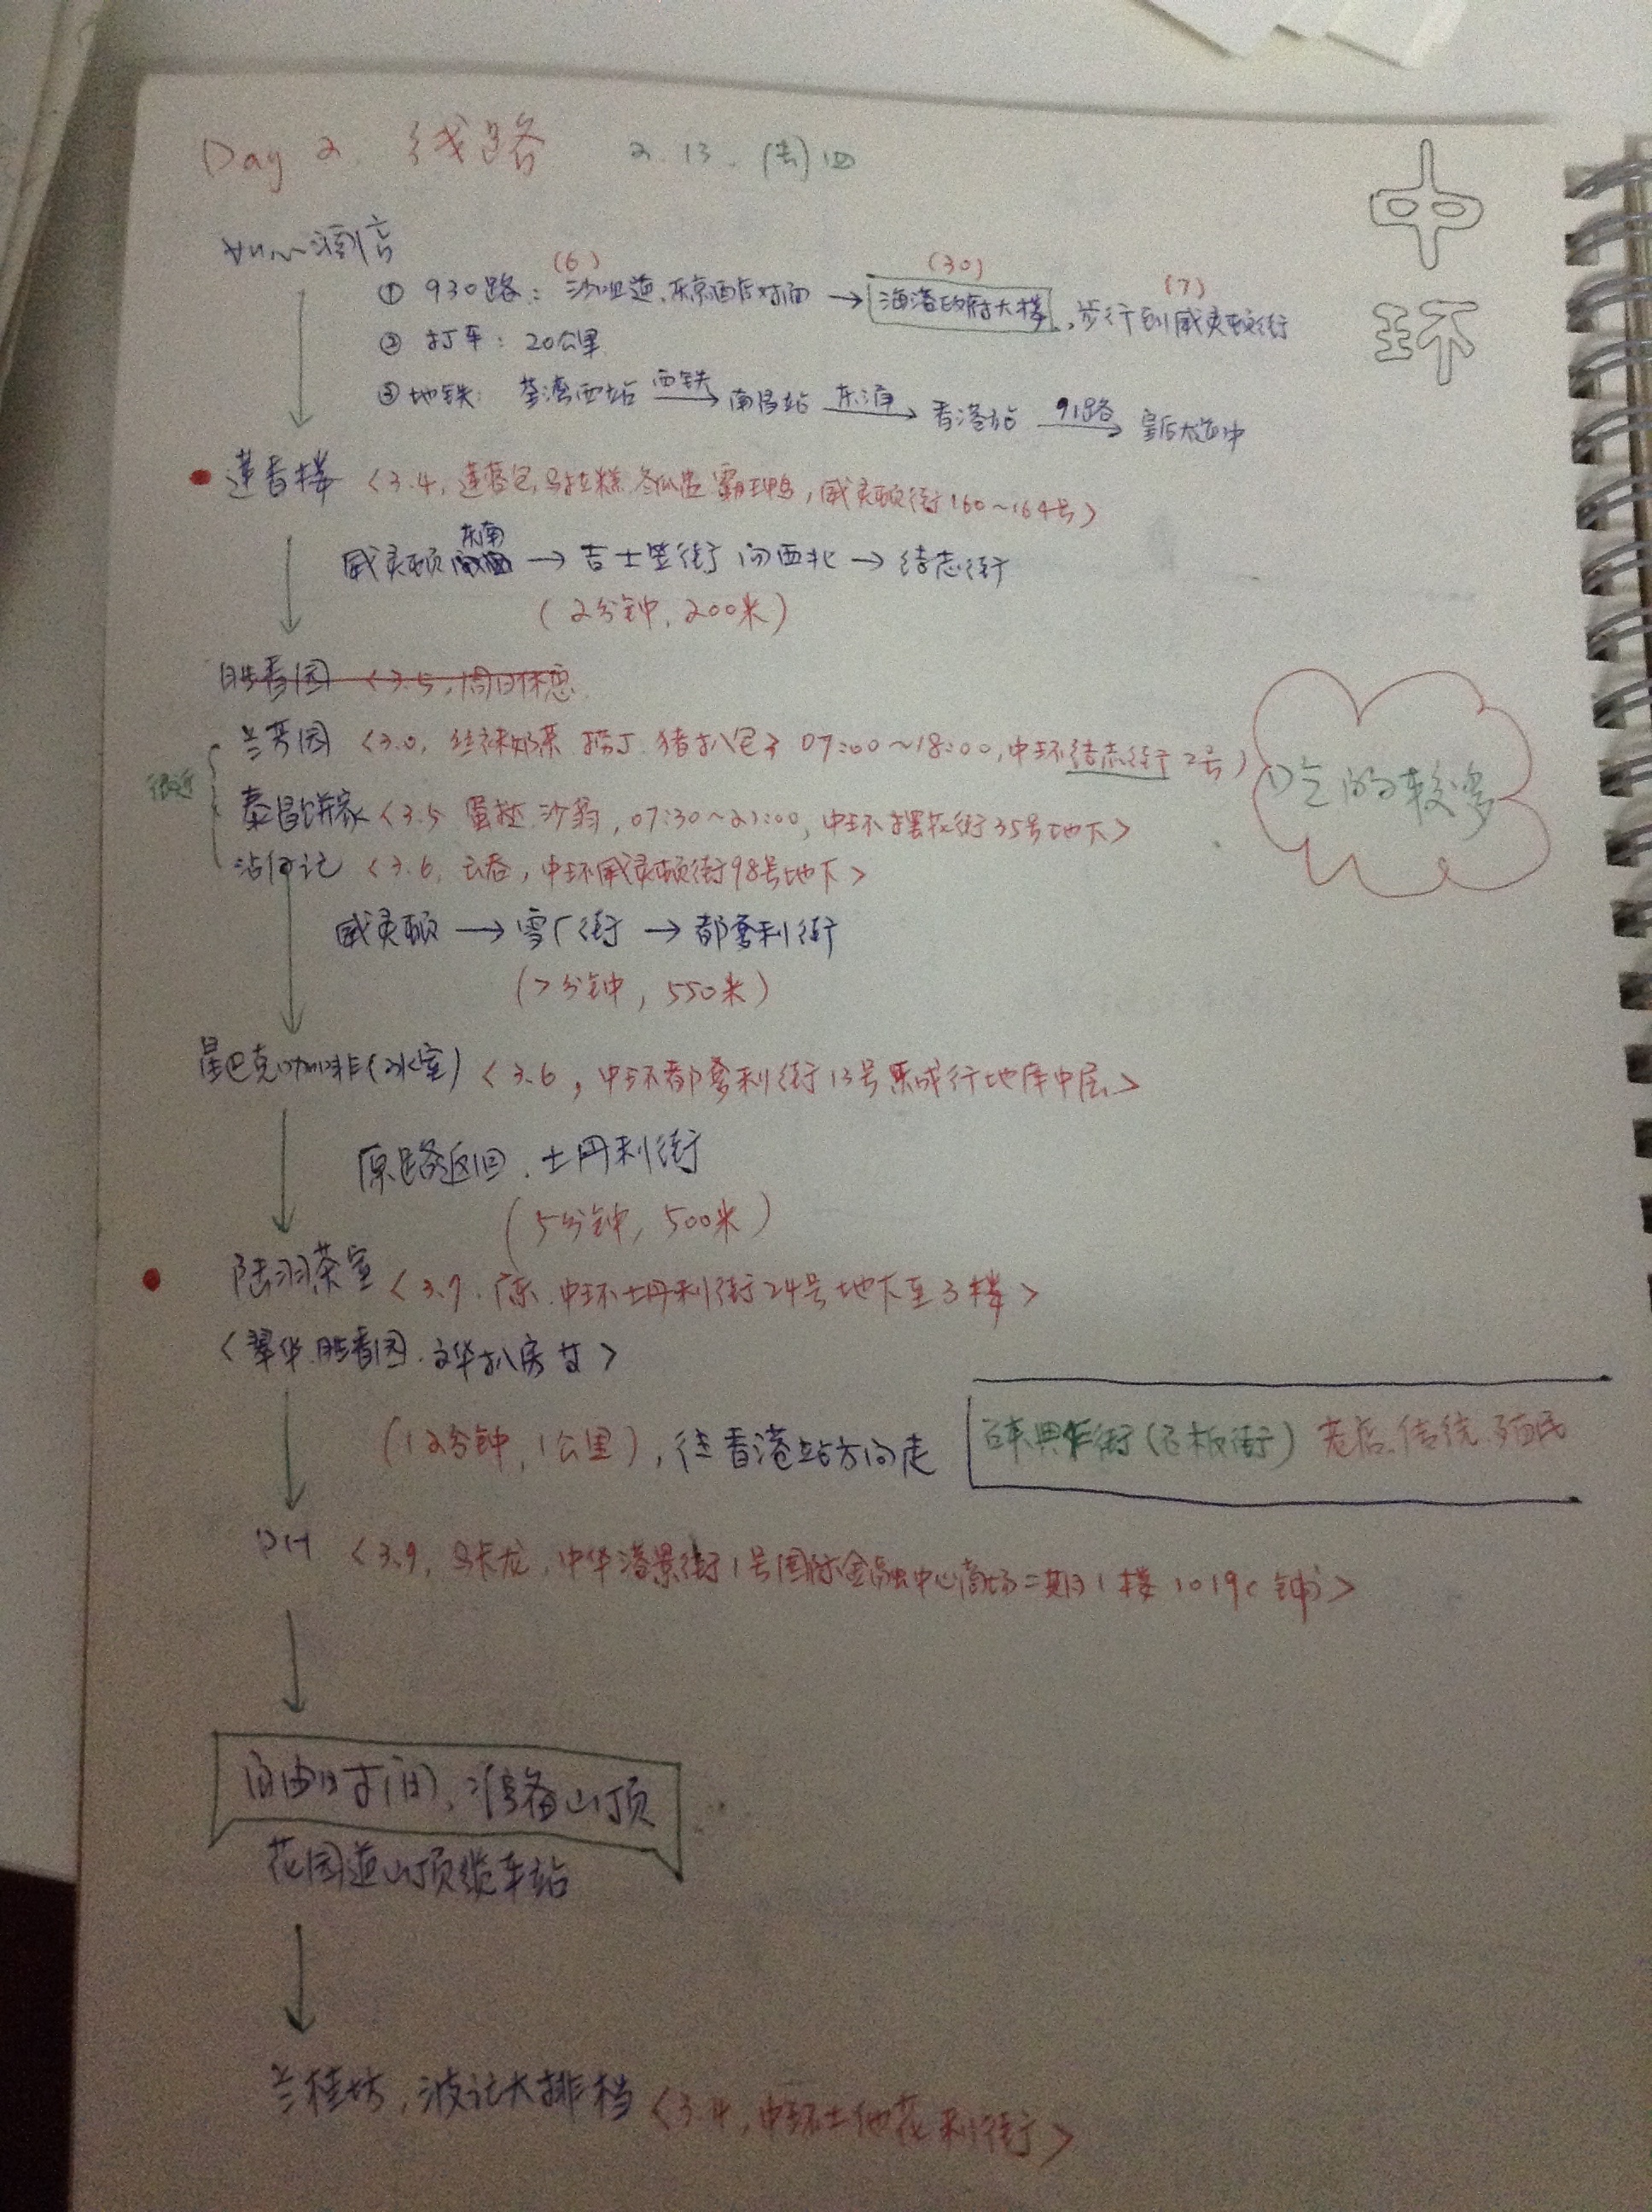 Day 2. 线路 2.13. (周)四
中
环
(6) (30) (7)
① 930路: 沙咀道, 东京酒店对面 → 海港政府大楼, 步行到威灵顿街
② 打车: 20公里
③ 地铁: 荃湾西站 西铁→ 南昌站 东涌→ 香港站 91路→ 皇后大道中
莲香楼 <3.4, 莲蓉包, 马拉糕 冬瓜盅 霸王鸭, 威灵顿街160~164号>
东南
威灵顿 → 吉士笠街 向西北 → 结志街
(2分钟, 200米)
胜香园 <3.5, 周日休息
兰芳园 <3.0, 丝袜奶茶 捞丁 猪扒包> 07:00~18:00, 中环结志街2号)
很近
泰昌饼家 <3.5 蛋挞 沙翁, 07:30~21:00, 中环摆花街35号地下>
吃的较多
沾仔记 <3.6, 云吞, 中环威灵顿街98号地下>
威灵顿 → 雪厂街 → 都爹利街
(7分钟, 550米)
星巴克咖啡(冰室) <3.6, 中环都爹利街13号乐成行地库中层>
原路返回, 士丹利街
(5分钟, 500米)
陆羽茶室 <3.7. 广东. 中环士丹利街24号地下至3楼>
<翠华. 胜香园. 文华扒房 >
(12分钟, 1公里), 往香港站方向走
砵典乍街(石板街) 老店. 传统. 殖民
PH <3.9, 马卡龙, 中华港景街1号国际金融中心商场二期1楼1019( 钟)>
自由时间, 准备山顶
花园道山顶缆车站
兰桂坊, 波记大排档 <3.4, 中环士他花利街>